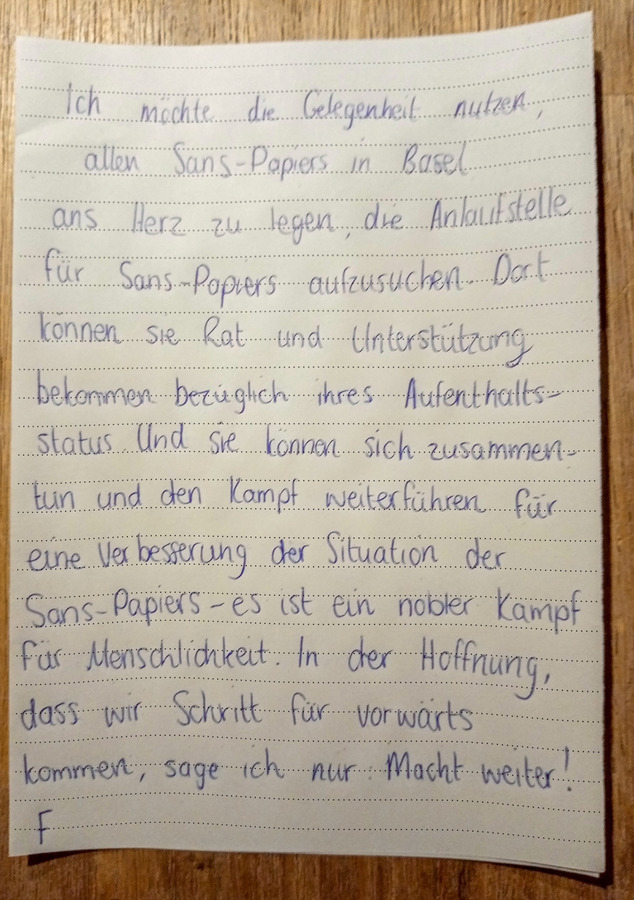 Ich möchte die Gelegenheit nutzen,
allen Sans-Papiers in Basel
ans Herz zu legen, die Anlaufstelle
für Sans-Papiers aufzusuchen. Dort
können sie Rat und Unterstützung
bekommen bezüglich ihres Aufenthalts-
status. Und sie können sich zusammen-
tun und den Kampf weiterführen für
eine Verbesserung der Situation der
Sans-Papiers - es ist ein nobler Kampf
für Menschlichkeit. In der Hoffnung,
dass wir Schritt für vorwärts
kommen, sage ich nur: Macht weiter!
F